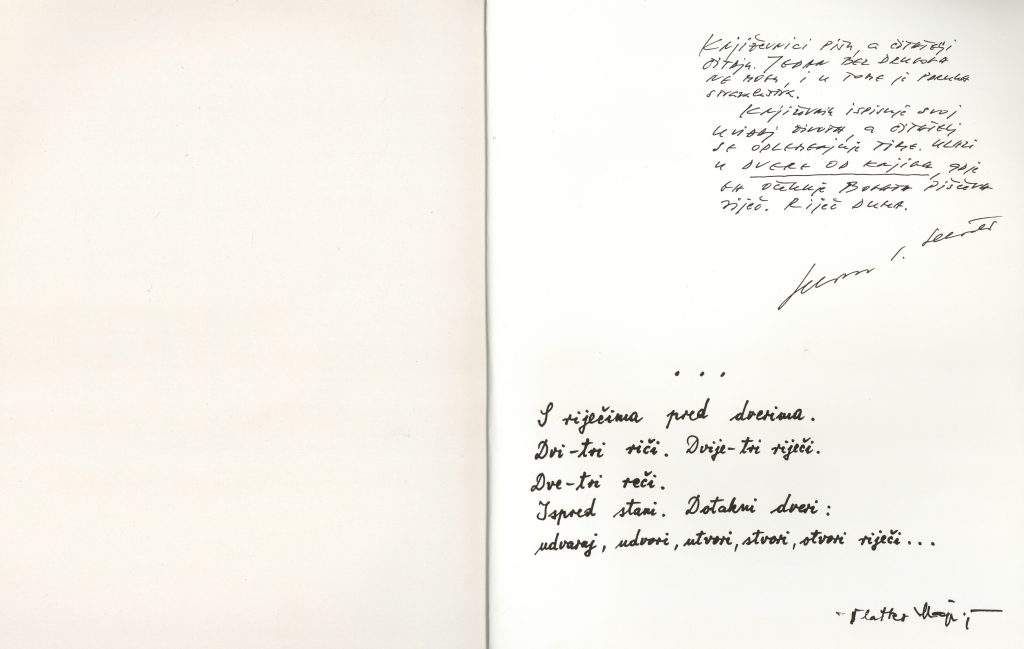 Književnici pišu, a čitatelji
čitaju. Jedan bez drugoga
ne mogu, i u tome je poruka
Književnik ispisuje svoj
uvidaj života, a čitatelj
se oplemenjuje time. Ulazi
u dvere od knjiga, gdje
ga očekuje bogata piščeva
riječ. Riječ duha.
...
S riječima pred dverima.
Dvi-tri riči. Dvije-tri riječi.
Dve-tri reči.
Ispred stani. Dotakni dveri:
udvaraj, udvori, utvori, stvori, otvori riječi...